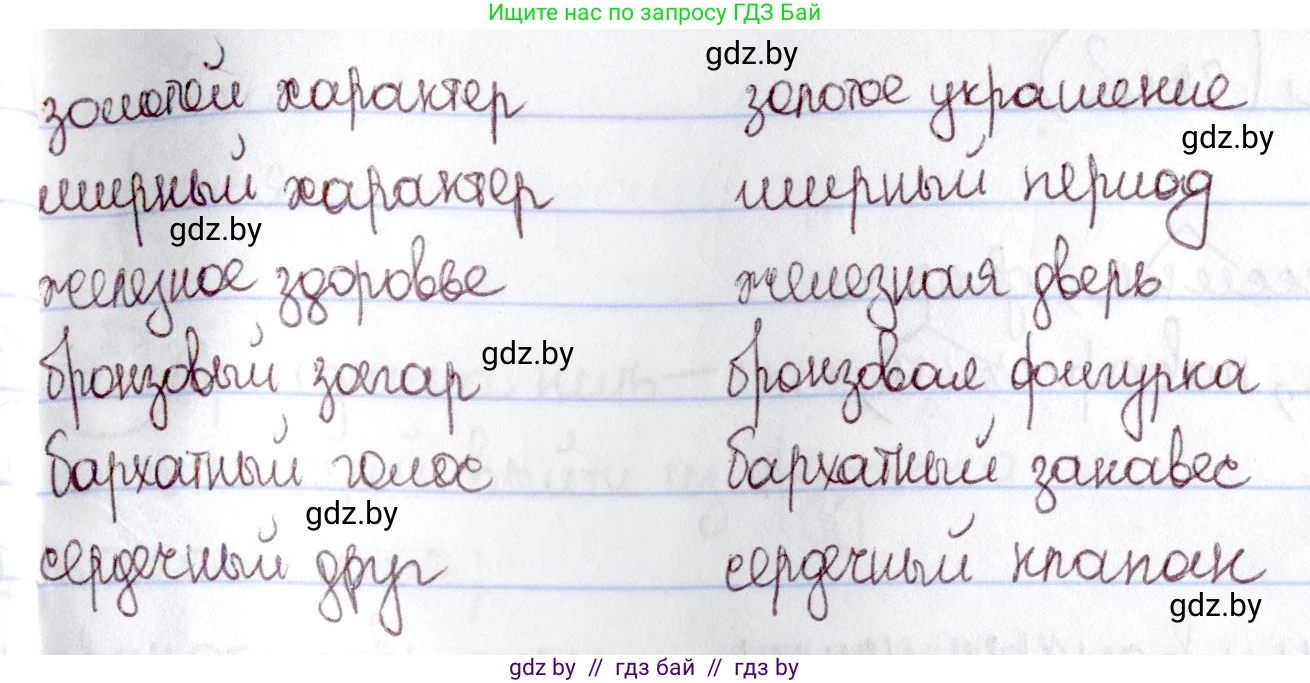 Ищите нас по запросу ГДЗ Бай
gdz.by
золотой характер золотое украшение
gdz.by
мирный характер мирный период
gdz.by
железное здоровье железная дверь
бронзовый загар gdz.by бронзовая фигурка
бархатный голос бархатный занавес
gdz.by
сердечный друг сердечный клапан
gdz.by
gdz by // гдз бай // гдз by